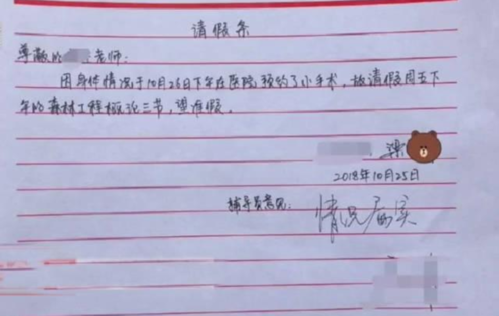 请假条
尊敬的 老师：
因身体情况于10月26日下午在医院预约了小手术，故请假周五下
午的森林工程概论三节，望准假。
梁
2018年10月25日
辅导员意见：
情况属实